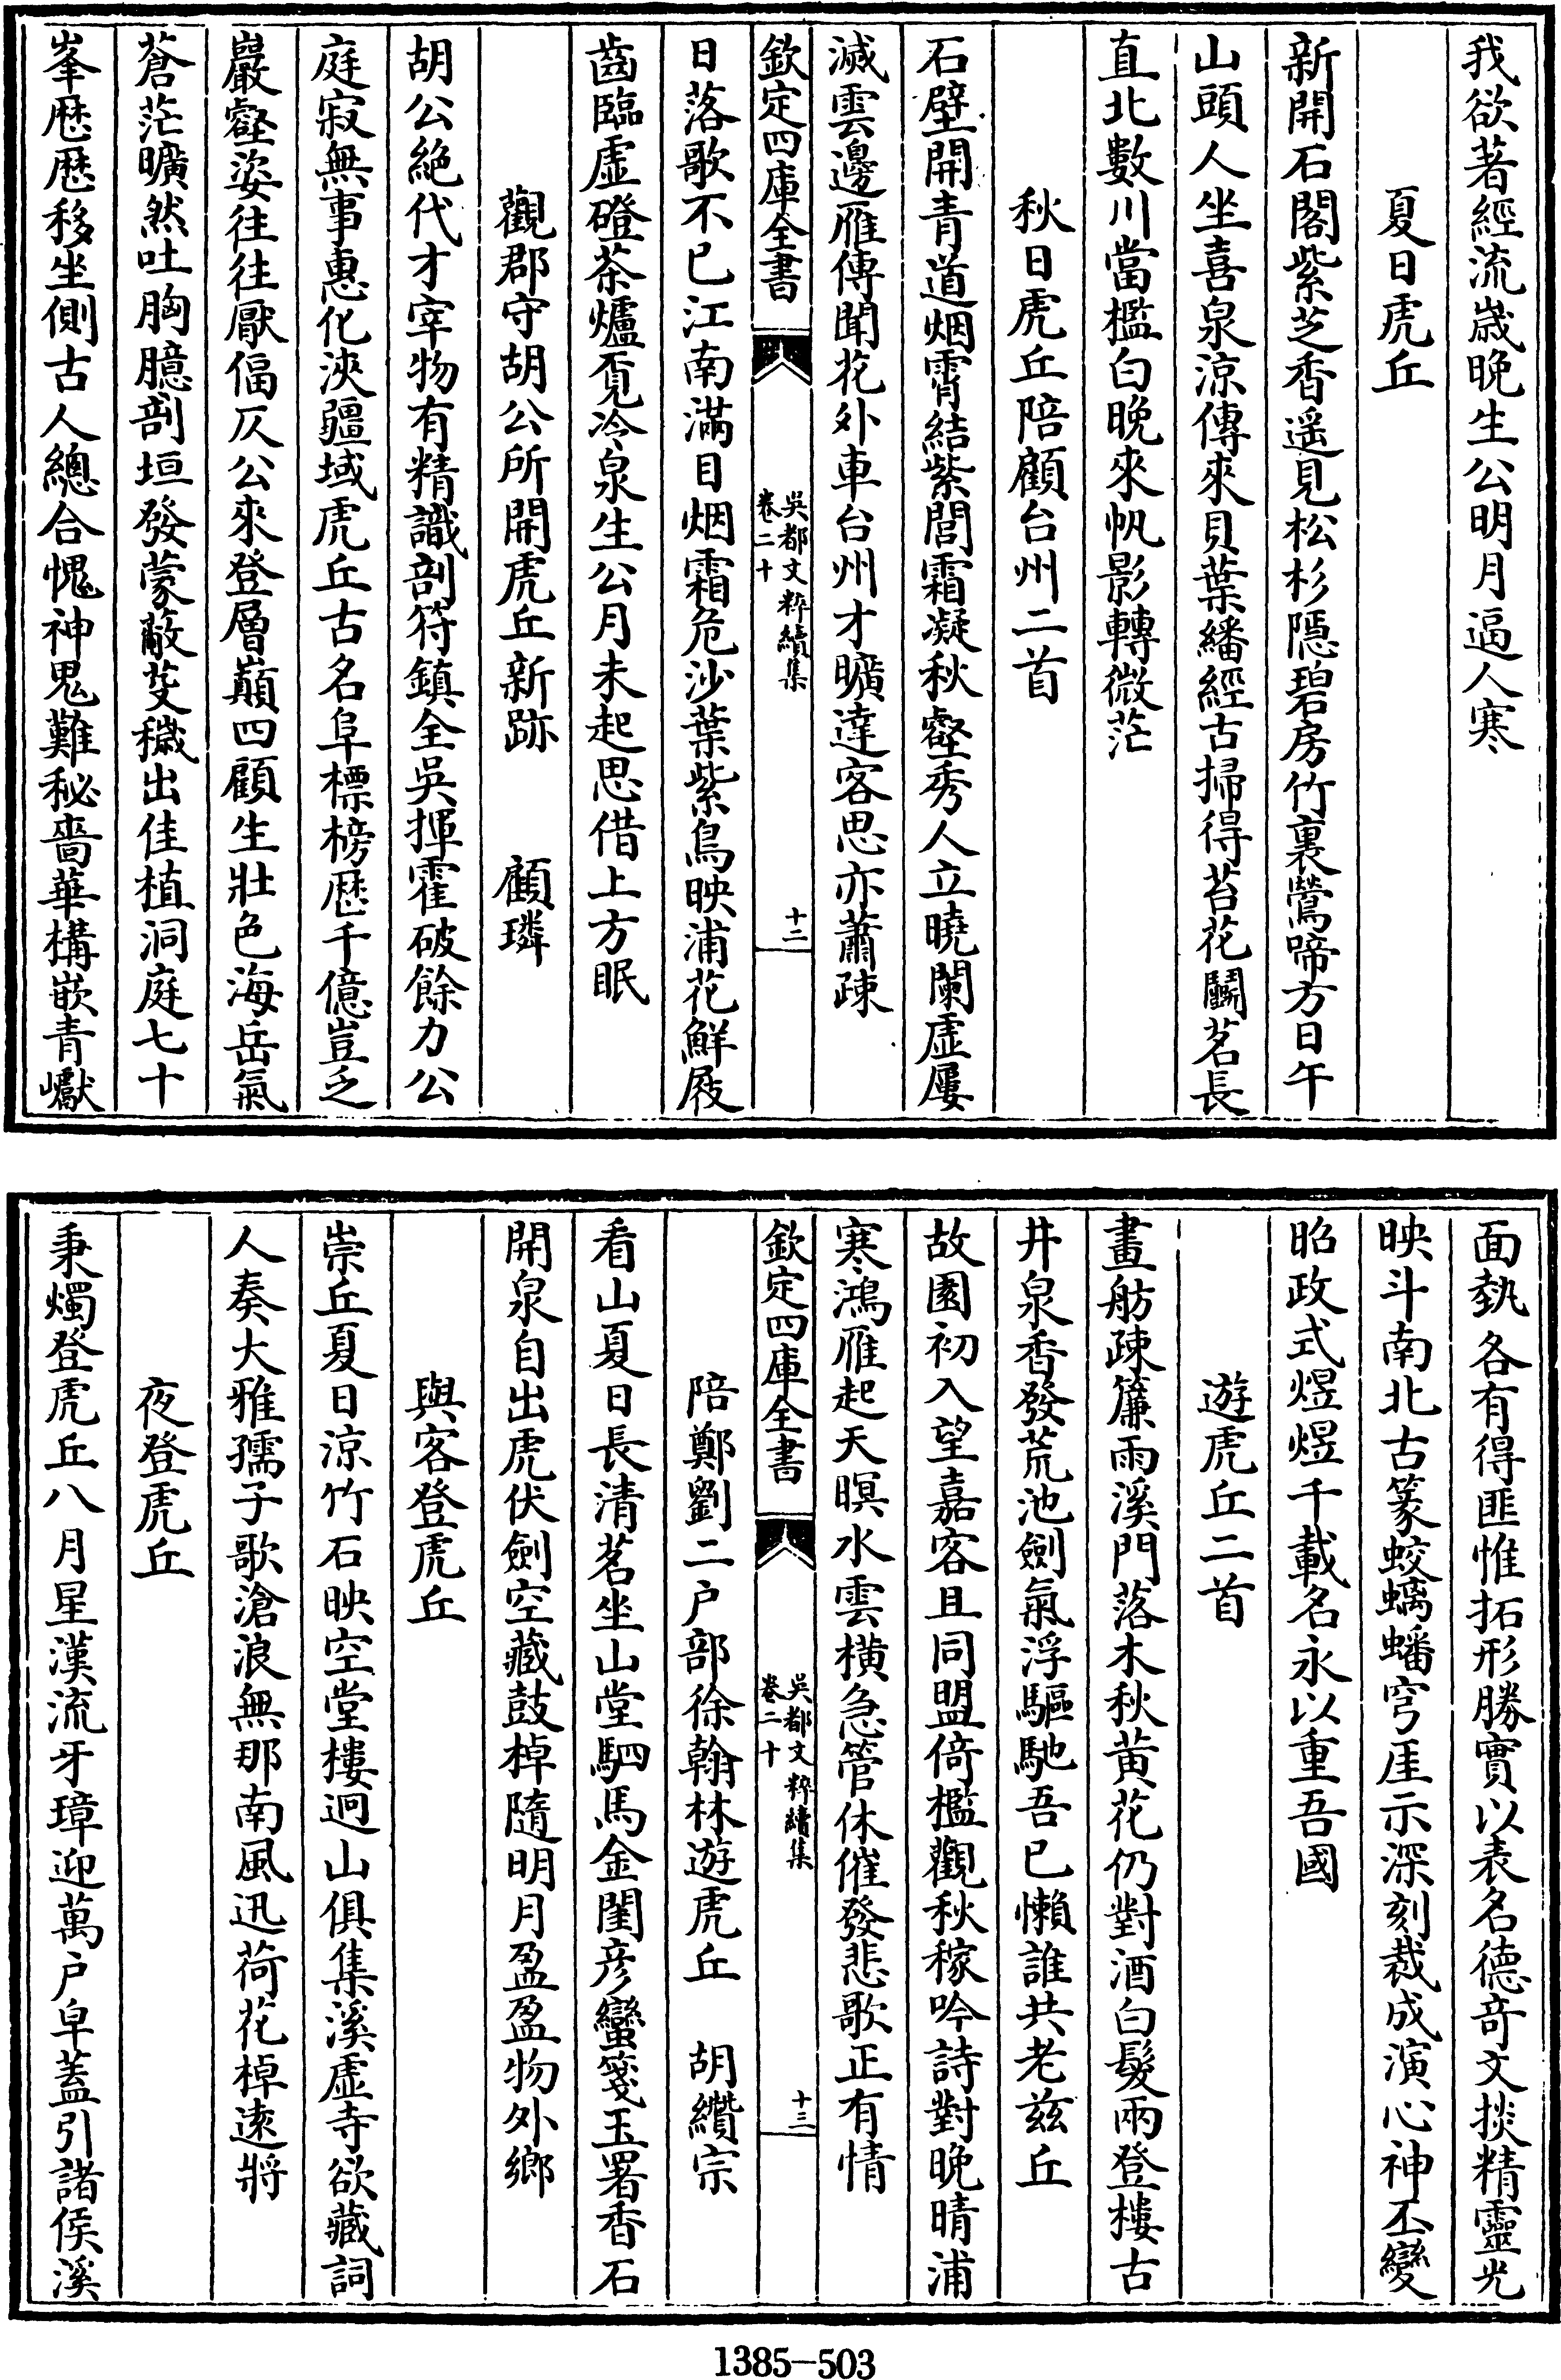 我欲著經流歳晚生公明月逼人寒
夏日虎丘
新開石閣紫芝香遥見松杉隠碧房竹裏鶯啼方日午
山頭人坐喜泉涼傳來貝葉繙經古掃得苔花鬭茗長
直北數川當檻白晚來帆影轉微茫
秋日虎丘陪顧台州二首
石壁開青道烟霄結紫閭霜凝秋壑秀人立曉闌虚屢
滅雲邊雁傳聞花外車台州才曠達客思亦蕭疎
欽定四庫全書
吳都文粹續集
卷二十
十二
日落歌不已江南滿目烟霜危沙葉紫鳥映浦花鮮屐
齒臨虚磴茶爐覔冷泉生公月未起思借上方眠
觀郡守胡公所開虎丘新跡 顧璘
胡公絶代才宰物有精識剖符鎮全吳揮霍破餘力公
庭寂無事惠化浹疆域虎丘古名阜標榜歴千億豈乏
巖壑姿往往厭偪仄公來登層巔四顧生壯色海岳氣
蒼茫曠然吐胸臆剖垣發蒙蔽芟穢出佳植洞庭七十
峯歴歴移坐側古人總合愧神鬼難秘嗇華構嵌青巘
面埶各有得匪惟拓形勝實以表名德竒文掞精靈光
映斗南北古篆蛟螭蟠穹厓示深刻裁成演心神丕變
昭政式煜煜千載名永以重吾國
遊虎丘二首
畫舫疎簾雨溪門落木秋黄花仍對酒白髮兩登樓古
井泉香發荒池劍氣浮驅馳吾已懶誰共老兹丘
故園初入望嘉客且同盟倚檻觀秋稼吟詩對晚晴浦
寒鴻雁起天暝水雲横急管休催發悲歌正有情
欽定四庫全書
吳都文粹續集
卷二十
十三
陪鄭劉二户部徐翰林遊虎丘 胡纘宗
看山夏日長清茗坐山堂駟馬金閨彦蠻箋玉署香石
開泉自出虎伏劍空藏鼓棹隨明月盈盈物外鄉
與客登虎丘
崇丘夏日涼竹石映空堂樓迥山俱集溪虚寺欲藏詞
人奏大雅孺子歌滄浪無那南風迅荷花棹逺將
夜登虎丘
秉燭登虎丘八月星漢流牙璋迎萬户皁蓋引諸侯溪
1385—503